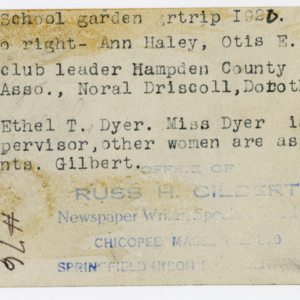 School garden grtrip 1926.
o right- Ann Haley, Otis E.
club leader Hampden County
Asso., Noral Driscoll,Dorot
Ethel T. Dyer. Miss Dyer i
pervisor,other women are as
nts. Gilbert.
OFFICE OF
RUSS H. GILBERT
Newspaper Writer,
CHICOPEE
SPRINGFIELD UNION
#76